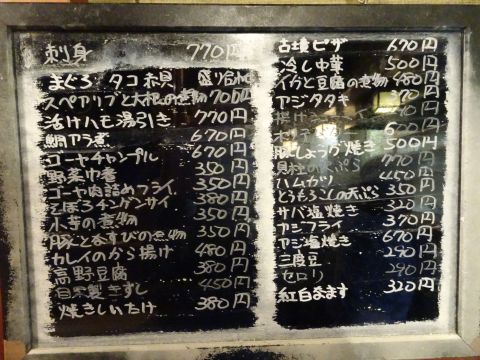 刺身 770円
まぐろ タコ 赤貝 盛り合わせ
スペアリブと大根の煮物 700円
活けハモ湯引き 770円
鯛アラ煮 670円
ゴーヤチャンプル 670円
野菜巾着 350
ゴーヤ肉詰めフライ 350円
350円
小芋の煮物 350円
豚となすびの煮物
カレイのから揚げ 480円
高野豆腐 380円
自家製きずし 450円
焼きしいたけ 380円
ピザ 670円
冷し中華 500円
イカと豆腐の煮物 480円
アジタタキ 370
揚げ
600円
豚しょうが焼き 500円
貝柱の天ぷら 770円
ハムカツ 450円
とうもろこしの天ぷら 350
サバ塩焼き 320円
アジフライ 370円
アジ塩焼き 670円
三度豆 290円
セロリ 290円
紅白なます 320円